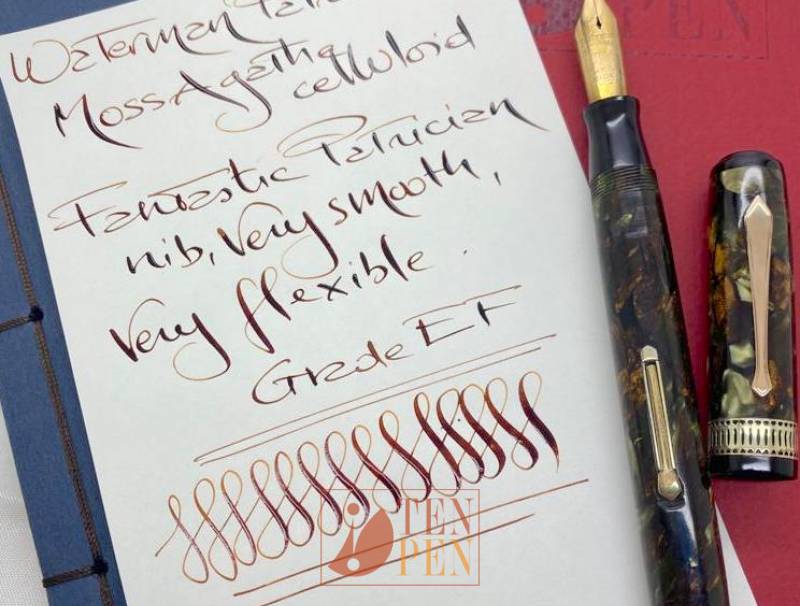 Waterman Patri
Moss Agatha
celluloid
Fantastic Patrician
nib, Very smooth,
Very flexible.
Grade EF
TEN
PEN
PEN